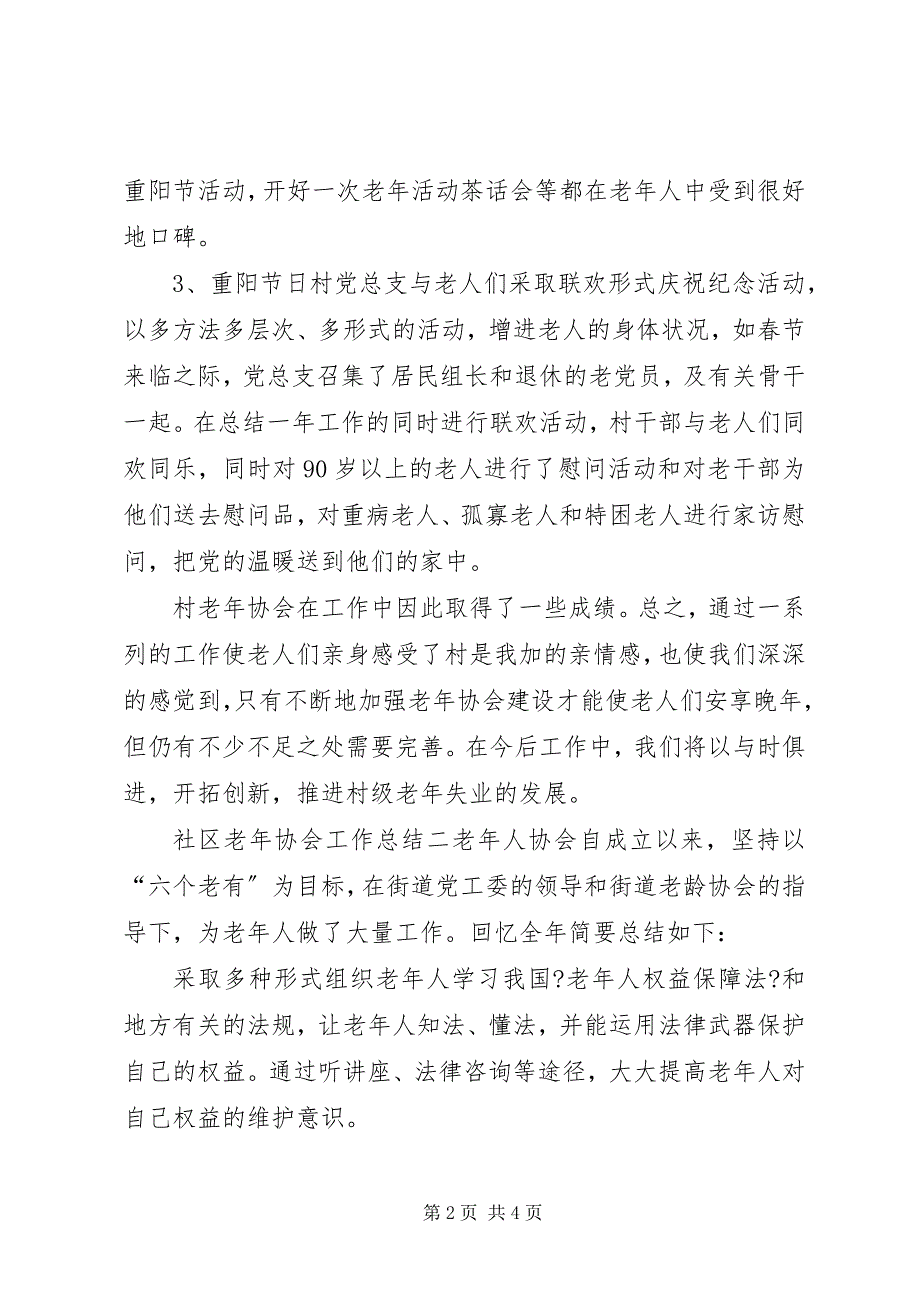 重阳节活动，开好一次老年活动茶话会等都在老年人中受到很好
地口碑。
3、重阳节日村党总支与老人们采取联欢形式庆祝纪念活动，
以多方法多层次、多形式的活动，增进老人的身体状况，如春节
来临之际，党总支召集了居民组长和退休的老党员，及有关骨干
一起。在总结一年工作的同时进行联欢活动，村干部与老人们同
欢同乐，同时对 90 岁以上的老人进行了慰问活动和对老干部为
他们送去慰问品，对重病老人、孤寡老人和特困老人进行家访慰
问，把党的温暖送到他们的家中。
村老年协会在工作中因此取得了一些成绩。总之，通过一系
列的工作使老人们亲身感受了村是我加的亲情感，也使我们深深
的感觉到，只有不断地加强老年协会建设才能使老人们安享晚年，
但仍有不少不足之处需要完善。在今后工作中，我们将以与时俱
进，开拓创新，推进村级老年失业的发展。
社区老年协会工作总结二老年人协会自成立以来，坚持以
“六个老有〞为目标，在街道党工委的领导和街道老龄协会的指
导下，为老年人做了大量工作。回忆全年简要总结如下：
采取多种形式组织老年人学习我国?老年人权益保障法?和
地方有关的法规，让老年人知法、懂法，并能运用法律武器保护
自己的权益。通过听讲座、法律咨询等途径，大大提高老年人对
自己权益的维护意识。
第 2 页 共 4 页